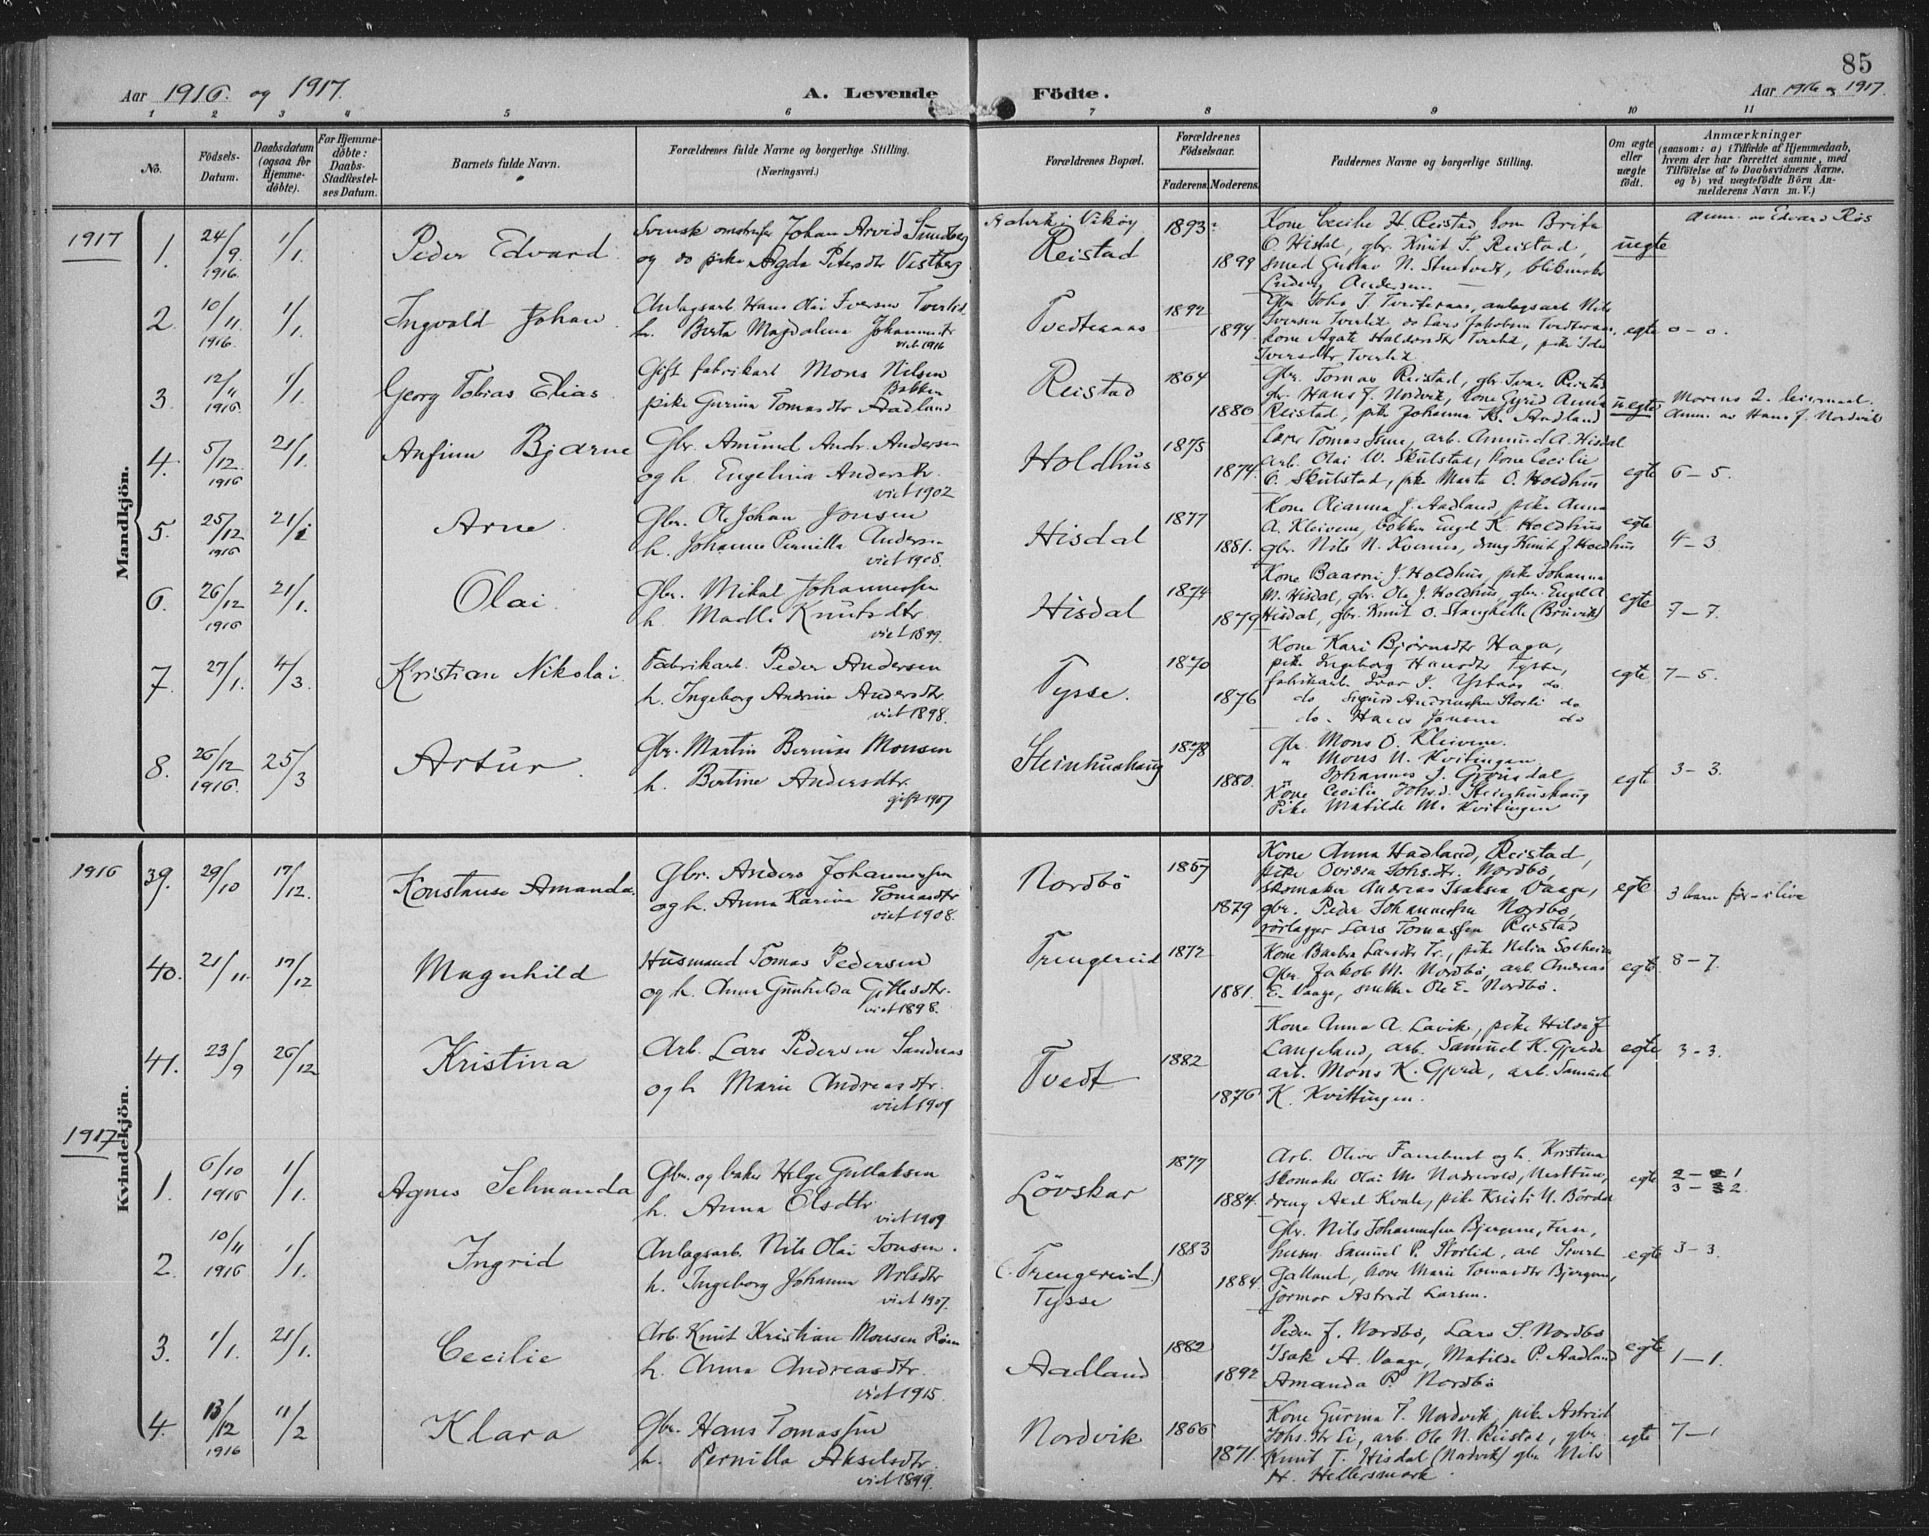 85
Aar 1916 og 1917. A. Levende Födte. Aar 1916 og 1917.
1 2 3 4 5 6 7 8 9 10 11
No. Födsels-Datum. Daabsdatum (ogsaa for Hjemme-döbte). For Hjemme-döbte: Daabs-Stadfæstel-ses Datum. Barnets fulde Navn. Forældrenes fulde Navne og borgerlige Stilling. (Næringsvei.) Forældrenes Bopæl. Forældrenes Födselsaar. Faderens. Moderens. Faddernes Navne og borgerlige Stilling. Om ægte eller uægte födt. Anmærkninger (saasom: a) i Tilfælde af Hjemmedaab, hvem der har forrettet samme, med Tilföielse af to Daabsvidners Navne. og b) ved uægtefödte Börn An-melderens Navn m. V.)
Mandkjön.
1917
1. 24/9 1916 1/1. Peder Edvard Svensk Johan Arvid
og do pike Agda Vestberg
Vikøy Reistad 1893 1899
Kone Cecilie H. Reistad, Brita
O. Hisdal, gbr. Knut T. Reistad,
smed Gustav N.
Ludvig Andersen
uegte anm. av Edvard Røs
2 10/11 1916. 1/1. Ingvald Johan Anlagsarb. Hans Olai Iversen Tverlid
h. Berta Magdalena
viet 1916
Tvedteraas 1892 1894
gbr Johs. T. Tvedteraas, anlagsarb Nils
Iversen Tverlid do Lars Jakobsen
kone Agate Tverlid, pike
Iversdtr Tverlid
egte 0 – 0.
3. 12/11 1916. 1/1. Georg Tobias Elias Gift fabrikarb Mons Nilsen
Bakken
pike Gurina Tomasdtr Aadland
Reistad 1864 1880
Gbr. Tomas Reistad, gbr. Ivar Reistad
gbr. Hans J. Nordvik, kone Gyrid Anna
Reistad, pike Johanna K. Aadland
uegte Morens 2. leiermaal.
Anm. av Hans J. Nordvik
4. 5/12. 1916 21/1. Anfinn Bjarne Gbr. Amund Andr. Andersen
og h. Engelina Andersdtr.
viet 1902
Holdhus 1875 1874
Lærer Tomas, arb. Amund A. Hisdal
arb. Olai W. Skulstad, kone Cecilie
O. Skulstad, pike Marta O. Holdhus
egte 6 – 5.
5. 25/12 1916 21/1 Arne. Gbr. Ole Johan Jonsen
h. Johanne Pernilla Andersen
viet 1908.
Hisdal 1877 1881.
Kone Oleanna J. Aadland, pike Anna
A. Kleivene, bøkker Engel K. Holdhus
gbr. Nils N. Kvernes, dreng Knut J. Holdhus
egte 4 – 3.
6. 26/12 1916 21/1. Olai. Gbr. Mikal Johannessen
h. Madli Knutsdtr
viet 1899.
Hisdal 1874 1879
Kone Baarni J. Holdhus, pike Johanna
M. Hisdal, gbr. Ole J. Holdhus, gbr. Engel A
Hisdal, gbr. Knut O. Stanghelle (Bruvik)
egte 7 – 7.
7. 27/1. 4/3. Kristian Nikolai Fabrikarb. Peder Andersen
h. Ingeborg Andrina Andersdtr.
viet 1898.
Tysse. 1870 1876
Kone Kari Bjørnsdtr Haga,
pike Ingeborg Hansdtr Tysse,
fabrikarb. Ivar I. Ystaas do
do Sigurd Andreassen Storli do
do. Hans Jansen do
egte 7 – 5.
8. 26/12 1916. 25/3 Artur. Gbr. Martin Bernias Monsen
h. Bertine Andersdtr.
gift 1907
Steinhushaug 1878 1880.
gbr. Mons O. Kleivene.
" Mons N. Kvitingen
" Johannes J. Grønsdal
Kone Cecilie Johsd. Steinhushaug
Pike Matilde M. Kvitingen
egte 3 – 3.
Kvindekjön.
1916
39. 29/10 17/12. Konstanse Amanda. Gbr. Anders Johannessen
og h. Anna Karina Tomasdtr
viet 1908.
Nordbö 1867 1879
Kone Anna Hadland, Reistad,
pike Ovidia Johs.dtr. Nordbö,
Skomaker Andreas Isaksen Vaage,
gbr. Peder Johannessen Nordbö,
rörlægger Lars Tomassen Reistad
egte 3 barn før – i live
40. 21/11. 17/12 Magnhild Husmand Tomas Pedersen
og h. Anna Gunhilda Gitlesdtr.
viet 1898.
Trengereid 1872 1881.
Kone Barbra Larsdtr Tr., pike Nilia Solheim
Gbr. Jakob M. Nordbö, arb. Andreas
E. Vaage, snekker Ole E. Nordbö.
egte 8 – 7.
41. 23/9 26/12 Kristina Arb. Lars Pedersen Sandnes
og h Marie Andreasdtr.
viet 1909
Tvedt 1882 1876
Kone Anna A. Lavik, pike Hilda J
Langeland, arb. Samuel K. Gjerde
arb. Mons K. Gjerde, arb. Samuel
K. Kvittingen.
egte 3 – 3.
1917
1. 6/10 1916 1/1. Agnes Selmanda Gbr. og baker Helge Gullaksen
h. Anna Olsdtr
viet 1909
Lövskar 1877 1884.
Arb. Oliver og h. Kristina
Skomaker Olai M. Nesttun,
dreng Axel Kvale, pike Kristi N. Børdal
egte 2 – 1
3 – 2.
2. 10/11 1916 1/1. Ingrid Anlagsarb. Nils Olai Jonsen.
h. Ingeborg Johanna Nilsdtr
viet 1907.
(Trengereid)
Tysse 1883 1884
Gbr. Nils Johannessen Bjergene, Fusa,
husm. Samuel P. Storlid, arb Sivert
Galland, kone Marie Tomasdtr Bjergene,
jormor Astrid Larsen.
egte 3 – 3.
3. 1/1. 21/1. Cecilie Arb. Knut Kristian Monsen
h. Anna Andreasdtr.
viet 1915.
Aadland 1882 1892
Peder J. Nordbö, Lars S. Nordbö
Isak A. Vaage, Matilde P. Aadland
Amanda P. Nordbö
egte 1 – 1.
4. 13/12 1916 11/2 Klara Gbr. Hans Tomassen
h. Pernilla Akselsdtr.
viet 1899.
Nordvik 1866 1871.
Kone Gurina T. Nordvik, pike Astrid
Johs.dtr Li, arb. Ole N. Reistad, gbr.
Knut T. Hisdal (Nordvik) gbr Nils
H. Hellersmark.
egte 7 – 1